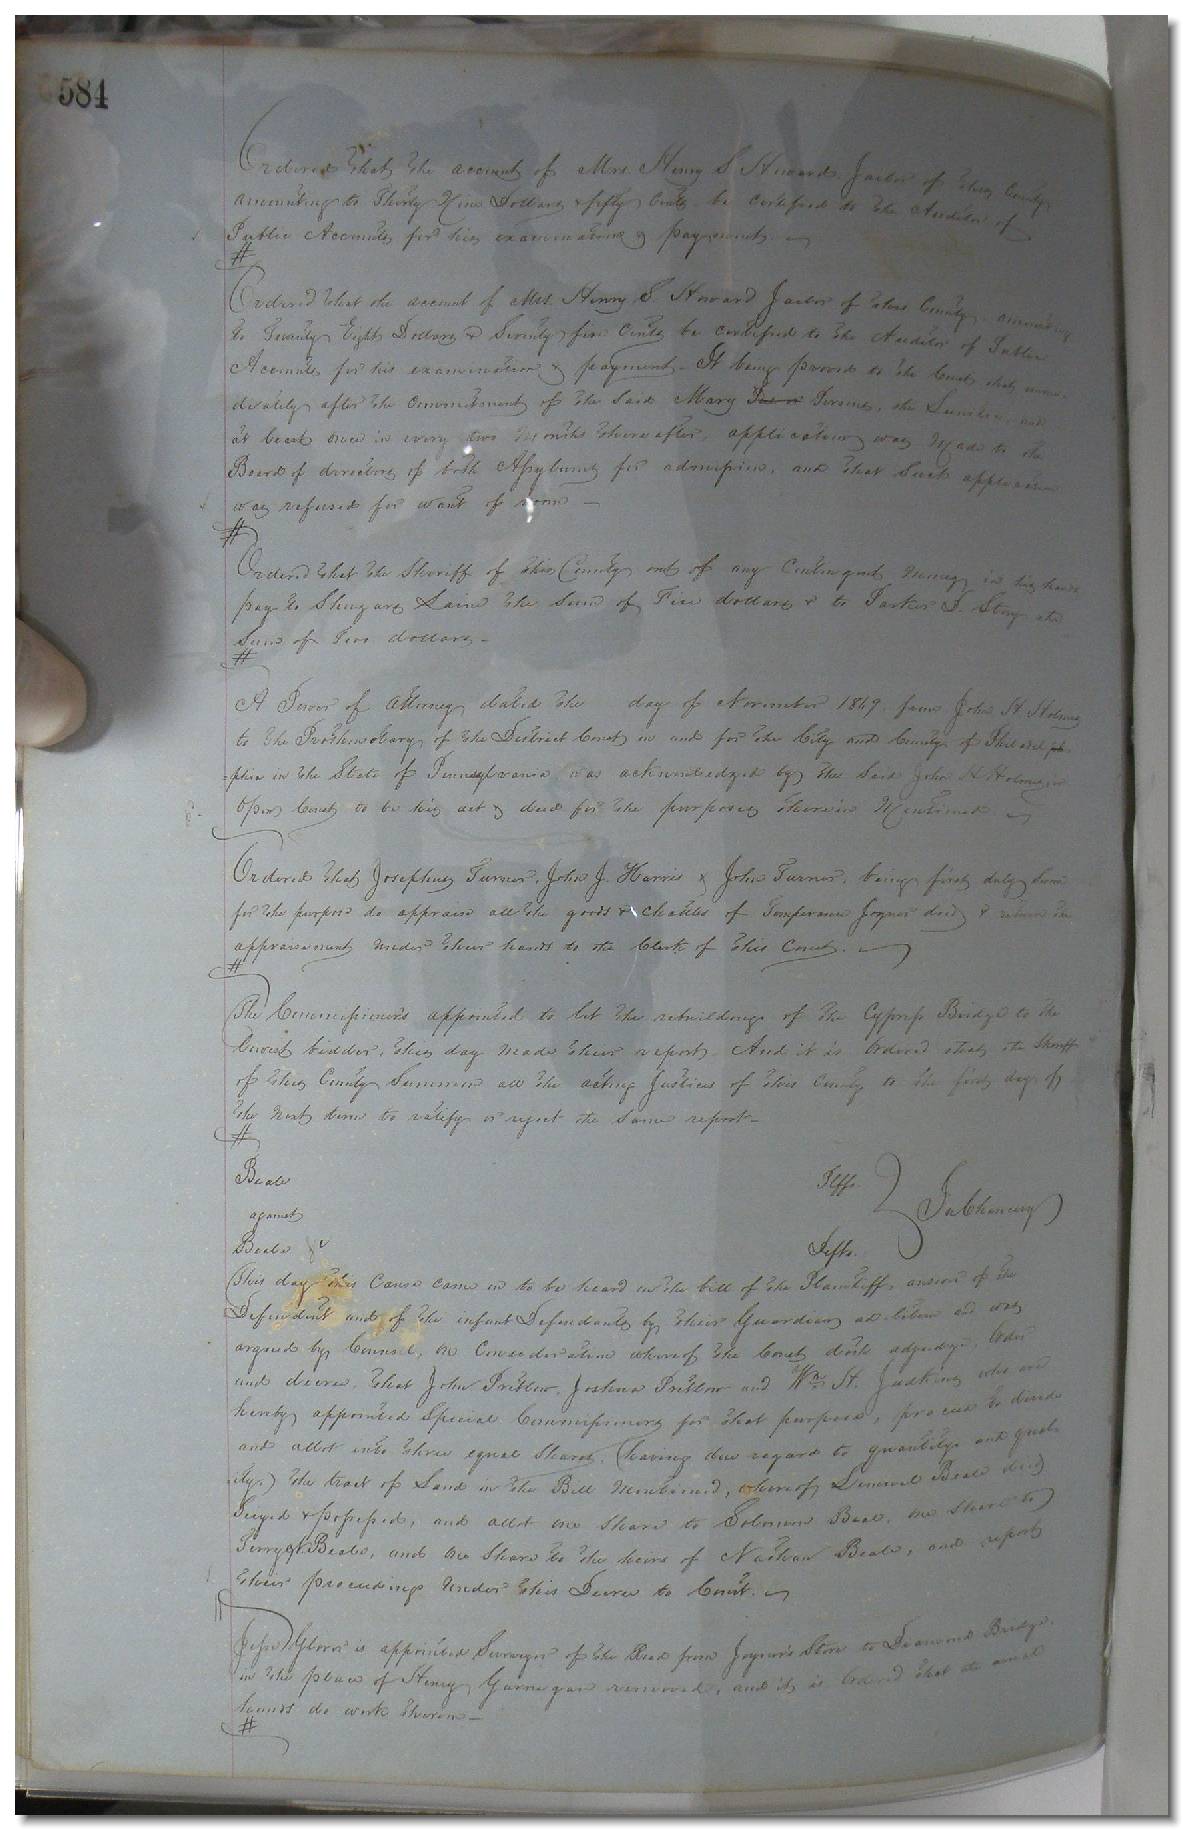 584
Ordered that the account of Mrs. Henry S Howard Jailor of this County
amounting to Thirty Nine Dollars & fifty Cents be certified to the Auditor of
Public Accounts for his examination & payment.
#
Ordered that the account of Mrs. Henry S. Howard Jailor of this County amounting
to Seventy Eight Dollars & Seventy five Cents be certified to the Auditor of Public
Accounts for his examination & payment - It being proved to the Court that imme-
diately after the commitment of the said Mary Persons, the Lunatic, and
at least once in every two Months thereafter, application was Made to the
Board of directors of both Assylums for admission, and that such application
was refused for want of room -
#
Ordered that the Sheriff of this County out of any Contingent Money in his hands
pay to Shugars Lain the Sum of Five dollars & to Parker D. Story the
Sum of Two dollars -
#
A Power of Attorney dated the day of November 1849 from John H Holmes
to the Prothonotary of the District Court in and for the City and County of Philadel
-phia in the State of Pennsylvania was acknowledged by the said John H Holmes in
Open Court to be his act & deed for the purposes therein Mentioned.
Ordered that Josephus Turner, John J. Harris & John Turner, being first duly sworn
for the purpose do appraise all the goods & chattles of Temperance Joyner decd & return the
appraisement under their hands to the Clerk of this Court.
#
The Commissioners appointed to let the rebuilding of the Cypress Bridge to the
lowest bidder, this day made their report. And it is Ordered that the Sheriff
of this County Summon all the acting Justices of this County to the first day of
the Next term to ratify or reject the Same report -
#
Beale Plffs.
against In Chancery
Beale &c Defts.
This day this Cause came on to be heard on the bill of the Plaintiff, answer of the
Defendant and of the infant Defendants by their Guardian ad-litem and was
argued by Counsel, on Consideration whereof the Court doth adjudge, Order
and decree, that John Pretlow, Joshua Pretlow and Wm. H. Judkins who are
hereby appointed Special Commissioners for that purpose, proceed to divide
and allot into three equal Shares, (having due regard to quantity and qual-
ity,) the tract of Land in the Bill Mentioned, whereof Lemuel Beale died
Seized & possessed, and allot one Share to Solomon Beale, one Share to
Perry Beale, and one Share to the heirs of Nathan Beale, and report
their proceedings under this Decree to Court.
Jesse Glover is appointed Surveyor of the Road from Joyner's Store to Diamond Bridge.
in the place of Henry Garnegan removed, and it is Ordered that the usual
hands do work thereon -
#